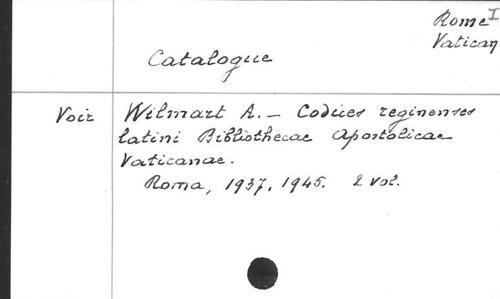 Rome I
Vatican
Catalogue
Voir Wilmart A. _ Codices reginenses
latini Bibliothecae Apostolicae
Vaticanae.
Roma, 1937, 1945. 2 vol.